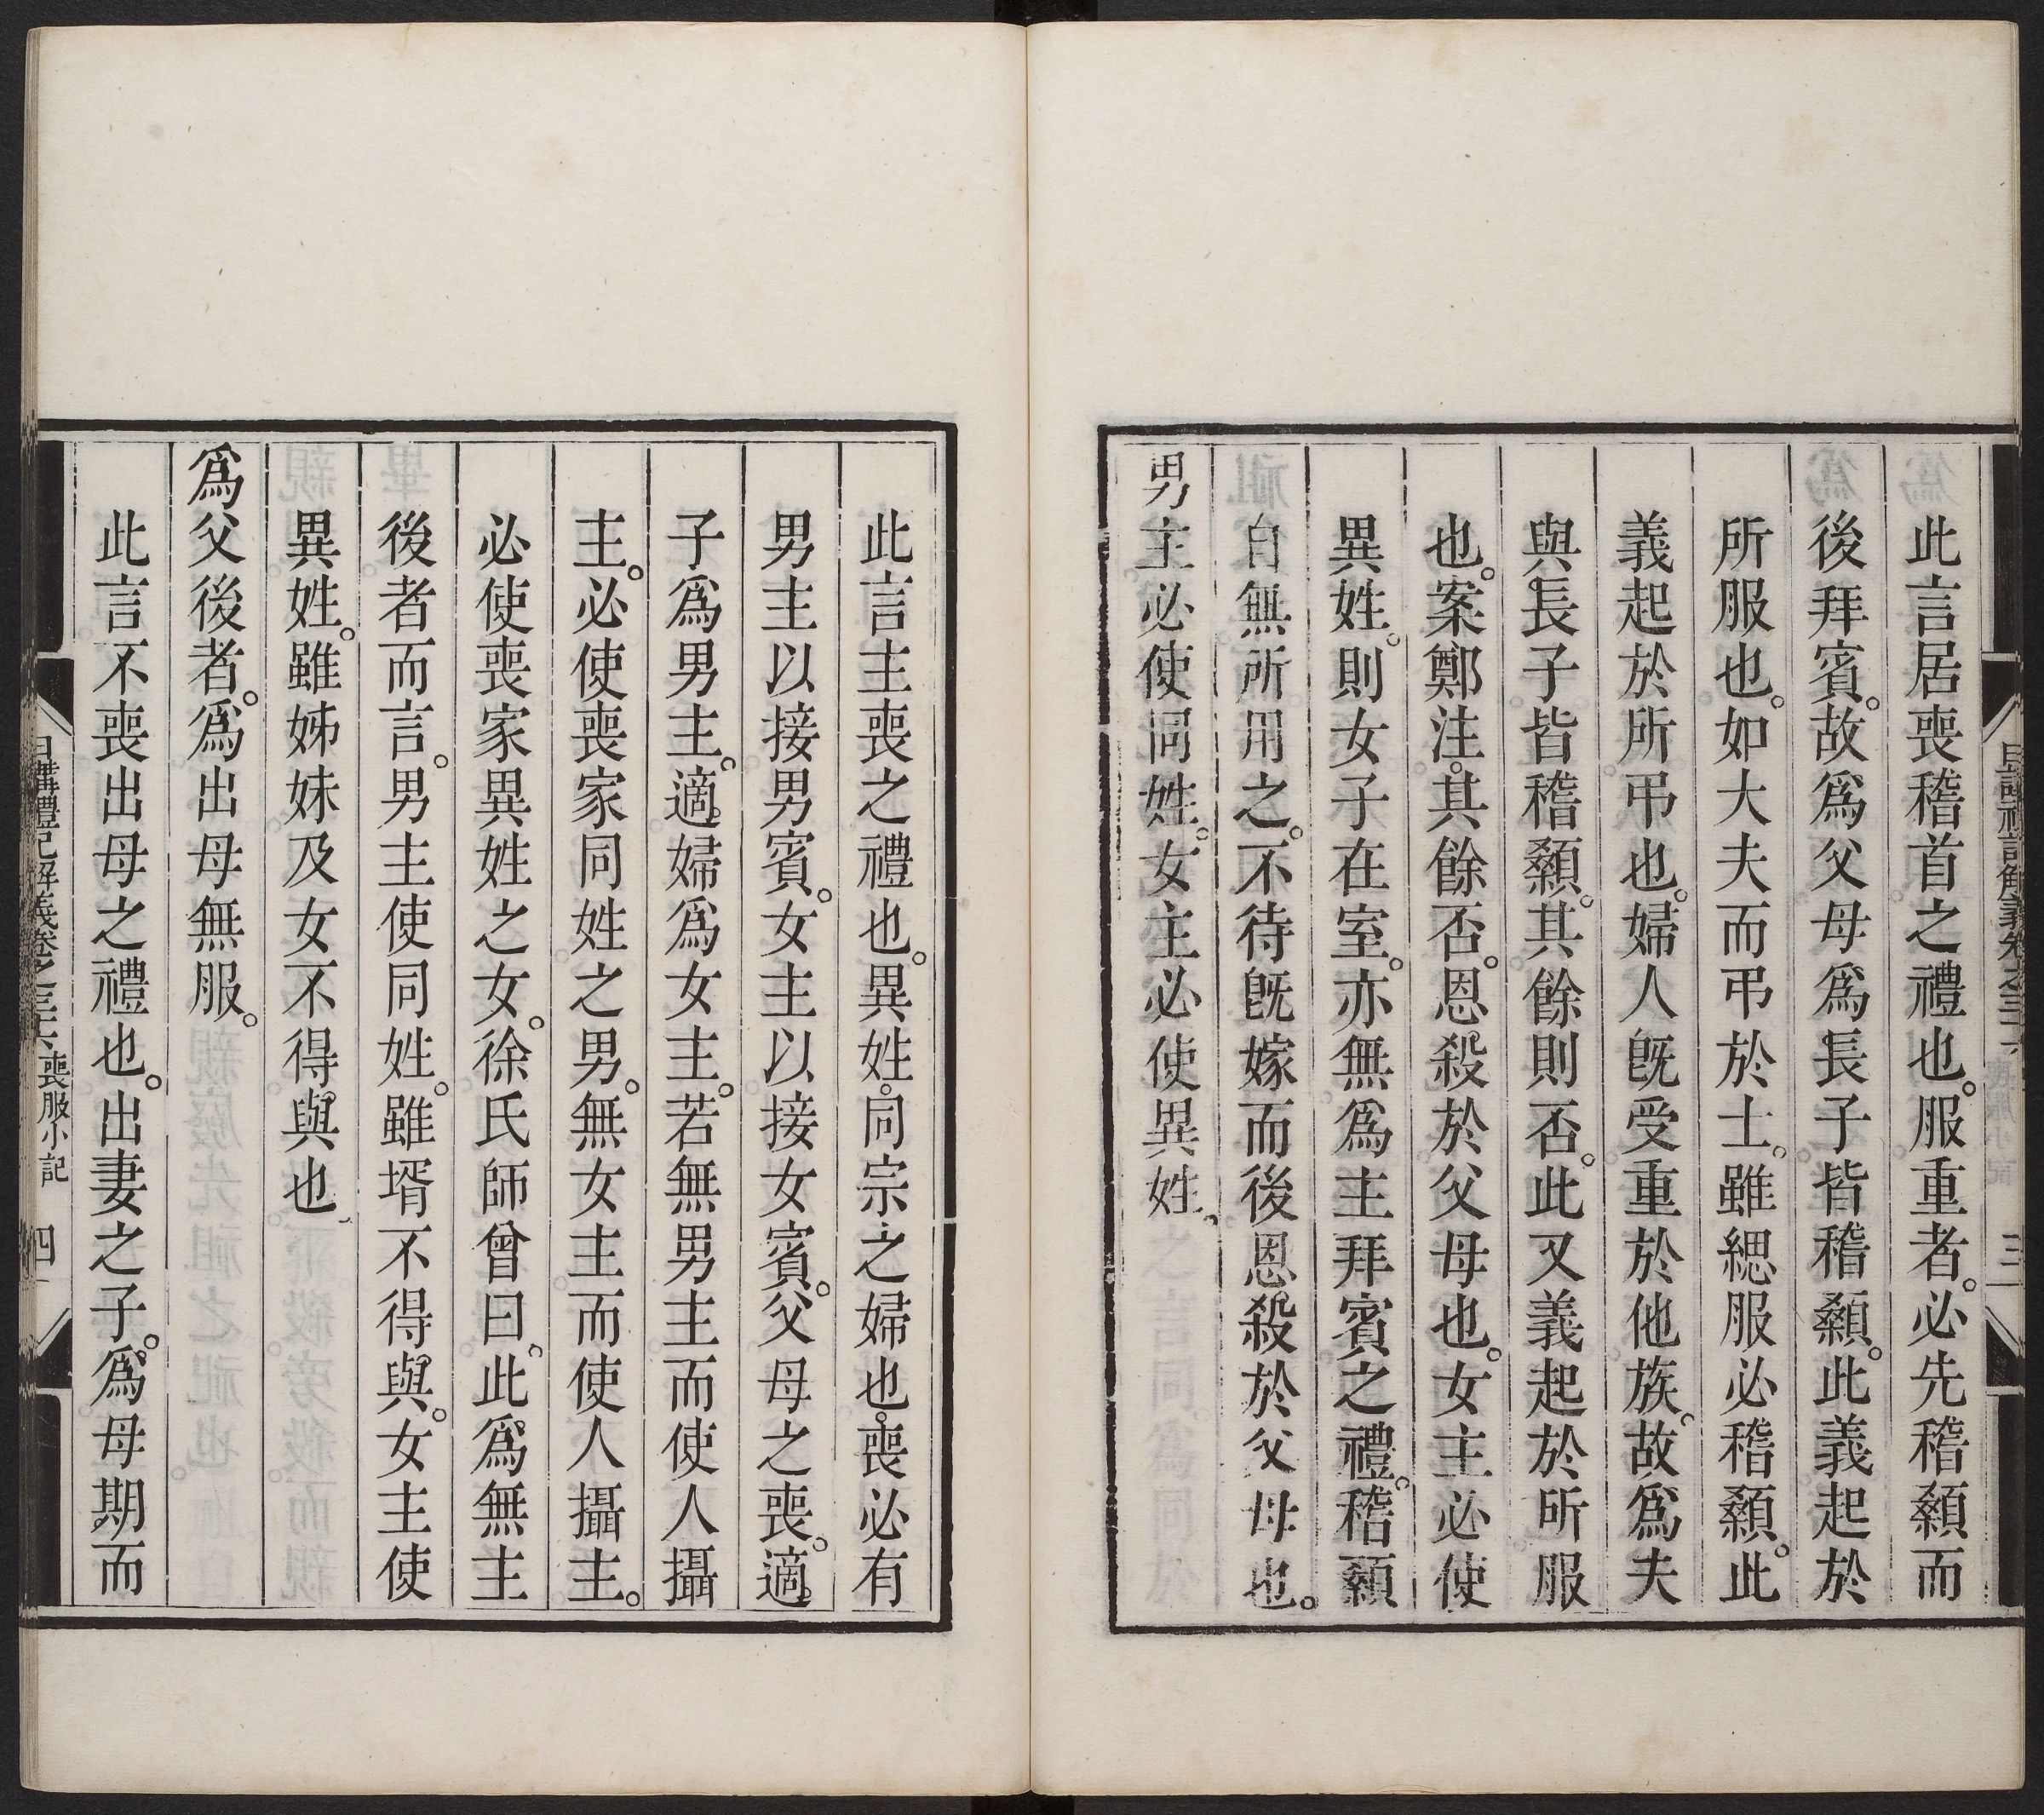 此言居喪稽首之禮也。服重者。必先稽顙而
後拜賓。故爲父母爲長子皆稽顙。此義起於
所服也。如大夫而弔於士。雖緦服必稽顙。此
義起於所弔也。婦人旣受重於他族。故爲夫
與長子皆稽顙。其餘則否。此又義起於所服
也。案鄭注。其餘否。恩殺於父母也。女主必使
異姓。則女子在室。亦無爲主拜賓之禮。稽顙
自無所用之。不待旣嫁而後恩殺於父母也。
男主必使同姓。女主必使異姓。
日講禮記解義卷之三十六
三
此言主喪之禮也。異姓。同宗之婦也。喪必有
男主以接男賓。女主以接女賓。父母之喪。適
子爲男主。適婦爲女主。若無男主而使人攝
主。必使喪家同姓之男。無女主而使人攝主。
必使喪家異姓之女。徐氏師曾曰。此爲無主
後者而言。男主使同姓。雖壻不得與。女主使
異姓。雖姊妹及女不得與也
爲父後者。爲出母無服。
此言不喪出母之禮也。出妻之子。爲母期而
日講禮記解義卷之三十六 喪服小記
四